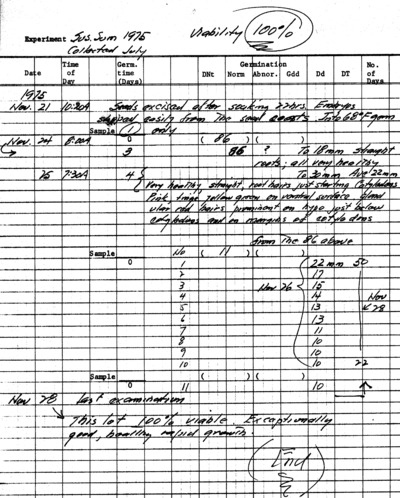 Viability 100%
Experiment Jus. Sum 1975
Collected July
Date Time of Day Germ. time (Days) Germination No. of Days
DNt Norm Abnor. Gdd Dd DT
1975
Nov. 21 10:30A Seeds excised after soaking 22 hrs. Embryos
slipped easily from the seed coats. Into 68°F germ
Sample 1 only
Nov. 24 8:00A 0 ( 86 ) ( )
3 86 ? To 18mm straight
roots; all very healthy
25 7:30A 4 To 30mm Ave 22mm
Very healthy, straight, root hairs just starting Cotyledons
Pink tinge yellow green on ventral surface Gland
ular red hairs prominent on hypo just below
cotyledons and on margins of cotyledons
from the 86 above
Sample No ( 11 ) ( )
0 1 22 mm 50
2 17
3 Nov 26 15
4 14 Nov
5 13 28
6 13
7 11
8 10
9 10
10 10 22
Sample ( ) ( )
0 11 10
Nov 28 last examination
This lot 100% viable. Exceptionally
good, healthy rapid growth.
(End)